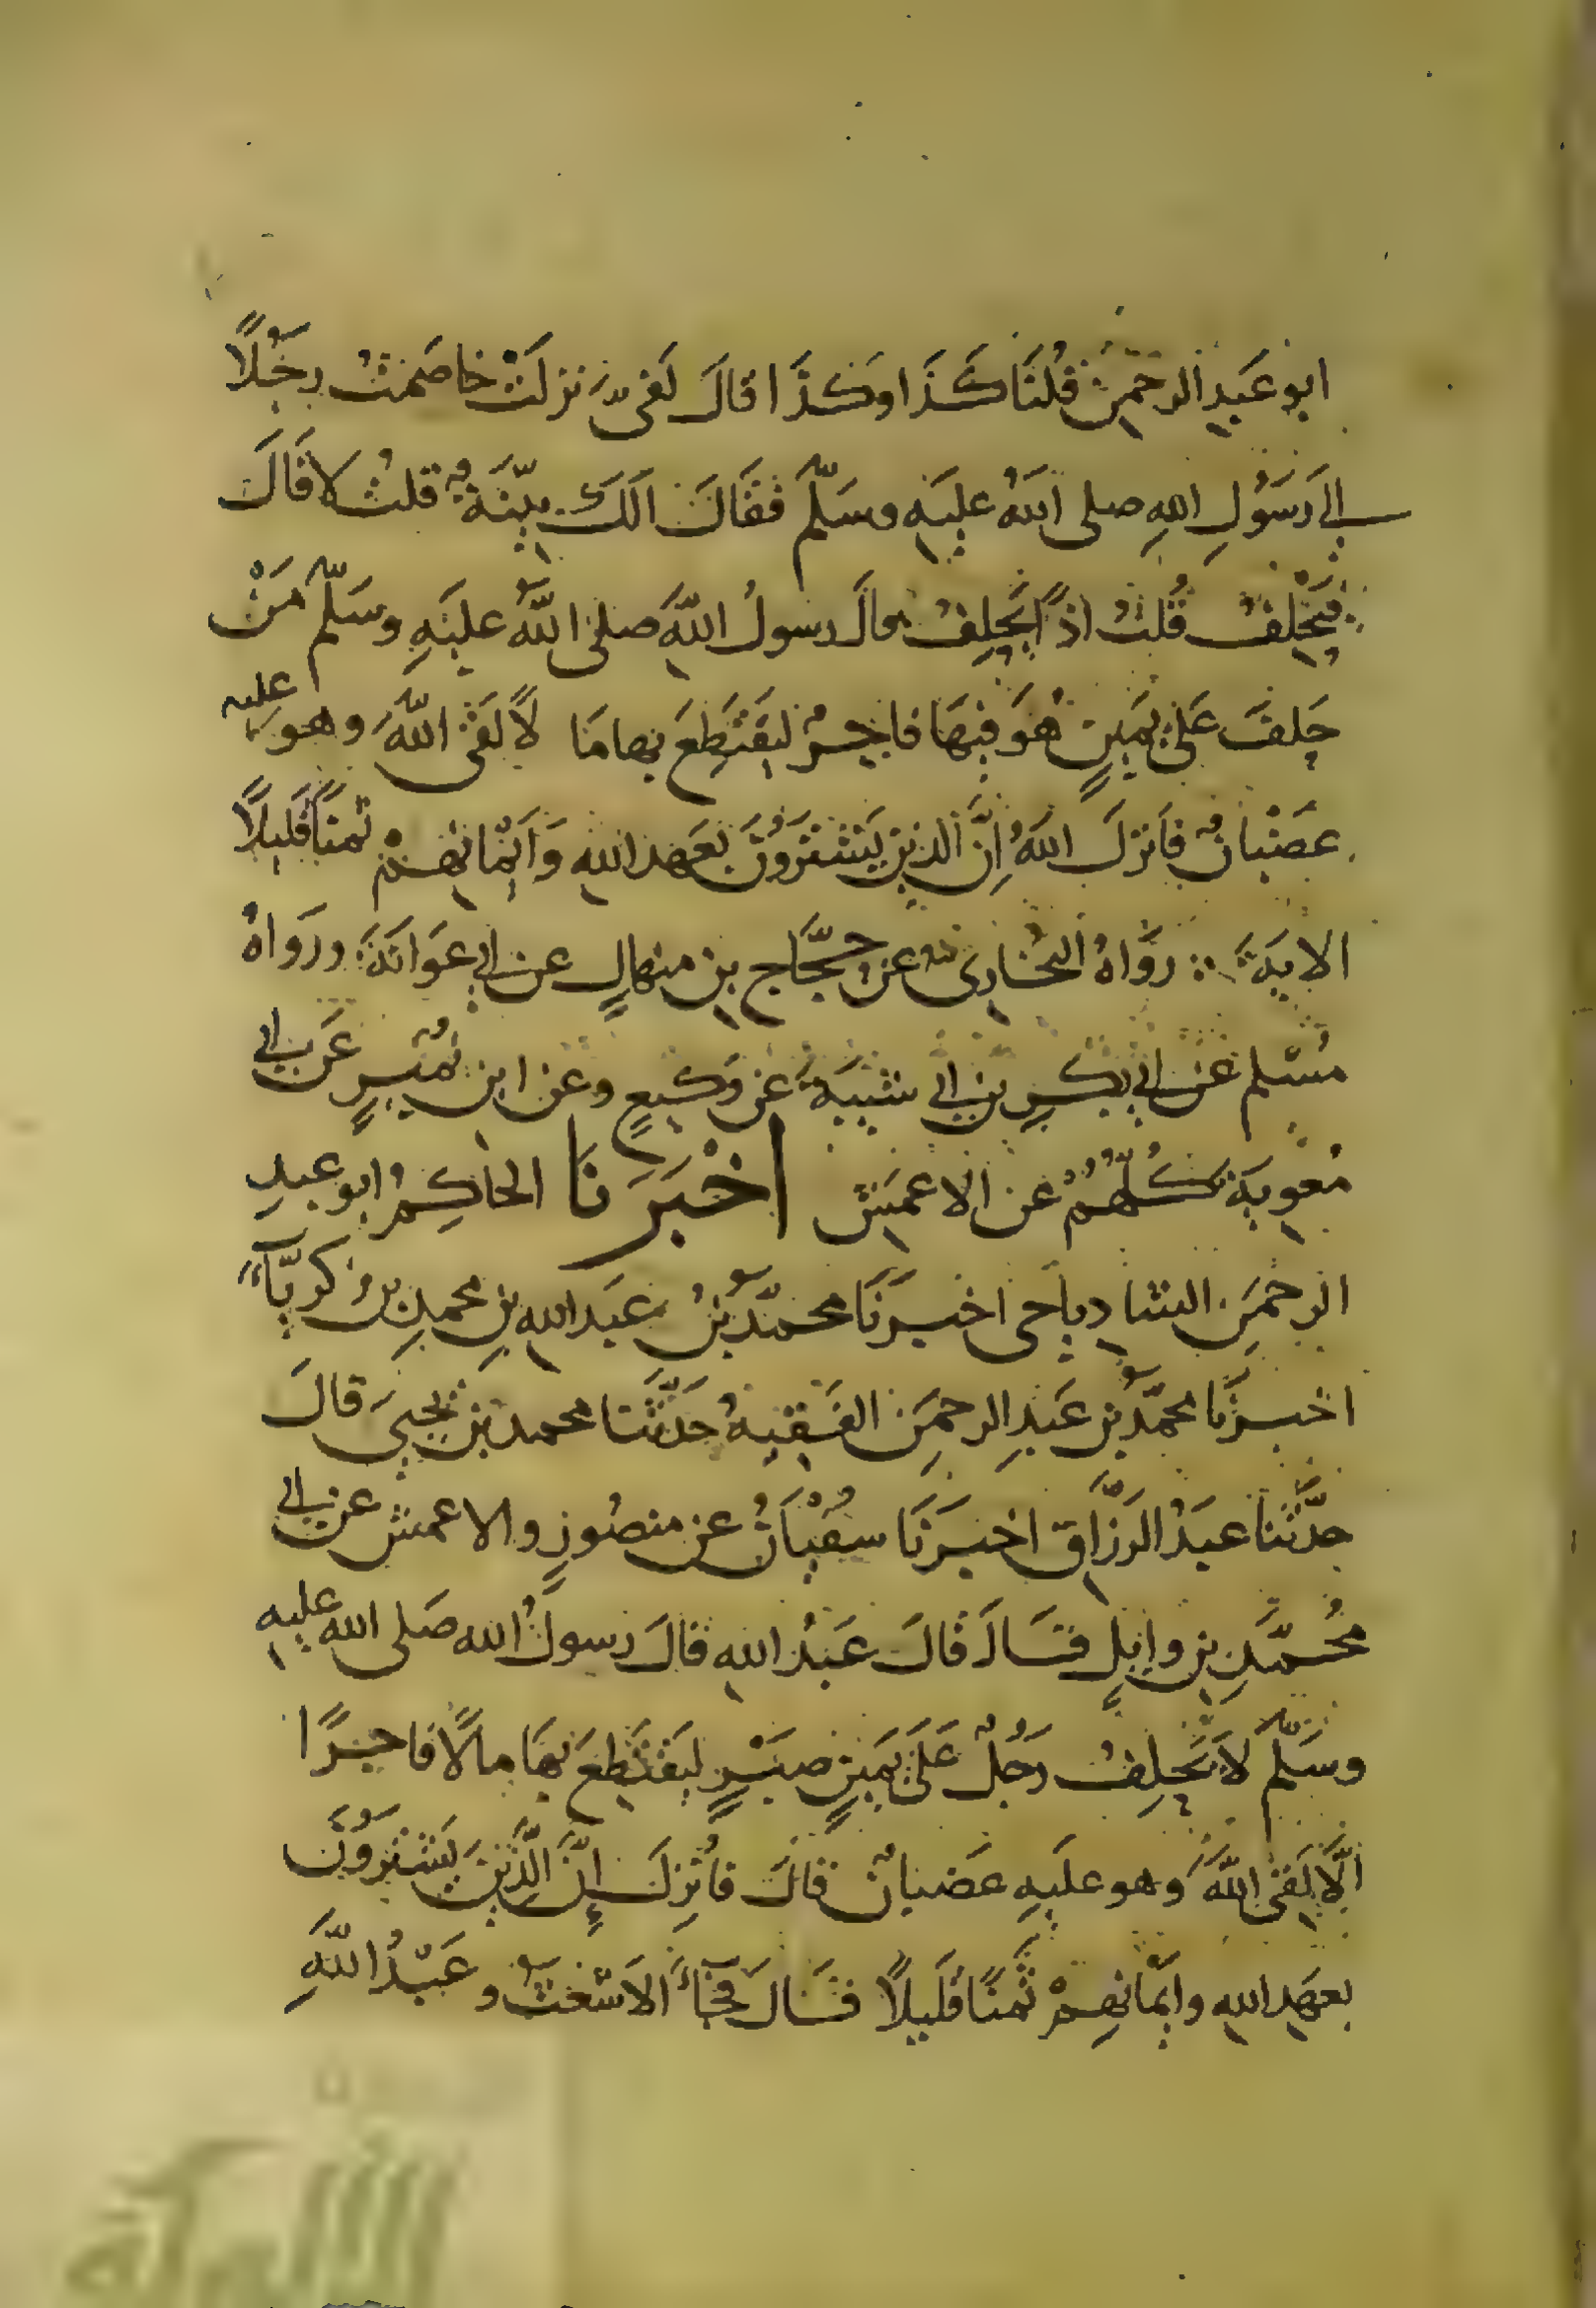 ابو عَبدِ الرحمن قُلنَا كَذَا وكَذَا قالَ لَفِيَّ نزلَتْ خاصَمتُ رجُلًا
الى رَسُولِ اللهِ صلى اللهُ عليَهِ وسَلَّمَ فقَالَ الَكَ بيّنَةٌ قلتُ لا قَالَ
فيَحْلِفُ قُلتُ اذًا يَحْلِفُ قالَ رسولُ اللهِ صلى اللهُ عليَهِ وسَلَّمَ مَنْ
حَلفَ عَلىٰ يَمينٍ هُوَ فيهَا فاجرٌ ليَقتَطِعَ بها مَا لًا لَقىَ اللهَ وهو عليه
غضْبانُ فانزلَ اللهُ إنَّ الذين يَشتَرُونَ بعَهدِ اللهِ وَأيمَانهِمْ ثمنًا قَليلًا
الايَة رَوَاهُ البُخاريُ عنْ حجَّاجِ بن منهالٍ عن ابى عَوَانَةَ ورَوَاهُ
مسْلم عن ابى بكرِ بن ابى شيبَةَ عن وَكيعٍ وعن ابن نُميرٍ عَن ابى
مُعٰويَة كُلُّهُمْ عن الاعمَشِ اخْبَرَنَا الحاكِمُ ابو عبدِ
الرحمَنِ الشاذياخى اخبرَنَا محمّدُ بنُ عبَد اللهِ بنِ محمدِ بن زكريّآء
اخبرَنا محمّدُ بن عَبدِ الرحمَنِ الفَقيهُ حَدَّثَنا محمد بن يحيىَ قالَ
حدَّثَنا عبَدُ الرَزَّاقِ اخبَرَنَا سفْيَانُ عن منصُورٍ والاعمش عن ابى
محُمَّدِ بن وايلٍ قَالَ قالَ عَبدُ اللهِ قالَ رسولُ الله صَلى الله عليه
وسَلَّمَ لا يَحْلِفُ رَجُلٌ عَلىٰ يَمينٍ صَبْرٍ ليَقتَطِعَ بهَا مالًا فاجرًا
الَّا لَقىَ اللهَ وهو عليَهِ غضبانُ قالَ فانزلَ إنَّ الَّذينَ يَشتَرُونَ
بعهَدِ اللهِ وايمَانهِمْ ثَمنًا قَليلًا قالَ فجَآءَ الاَشْعَثُ و عَبْدُ اللهِ